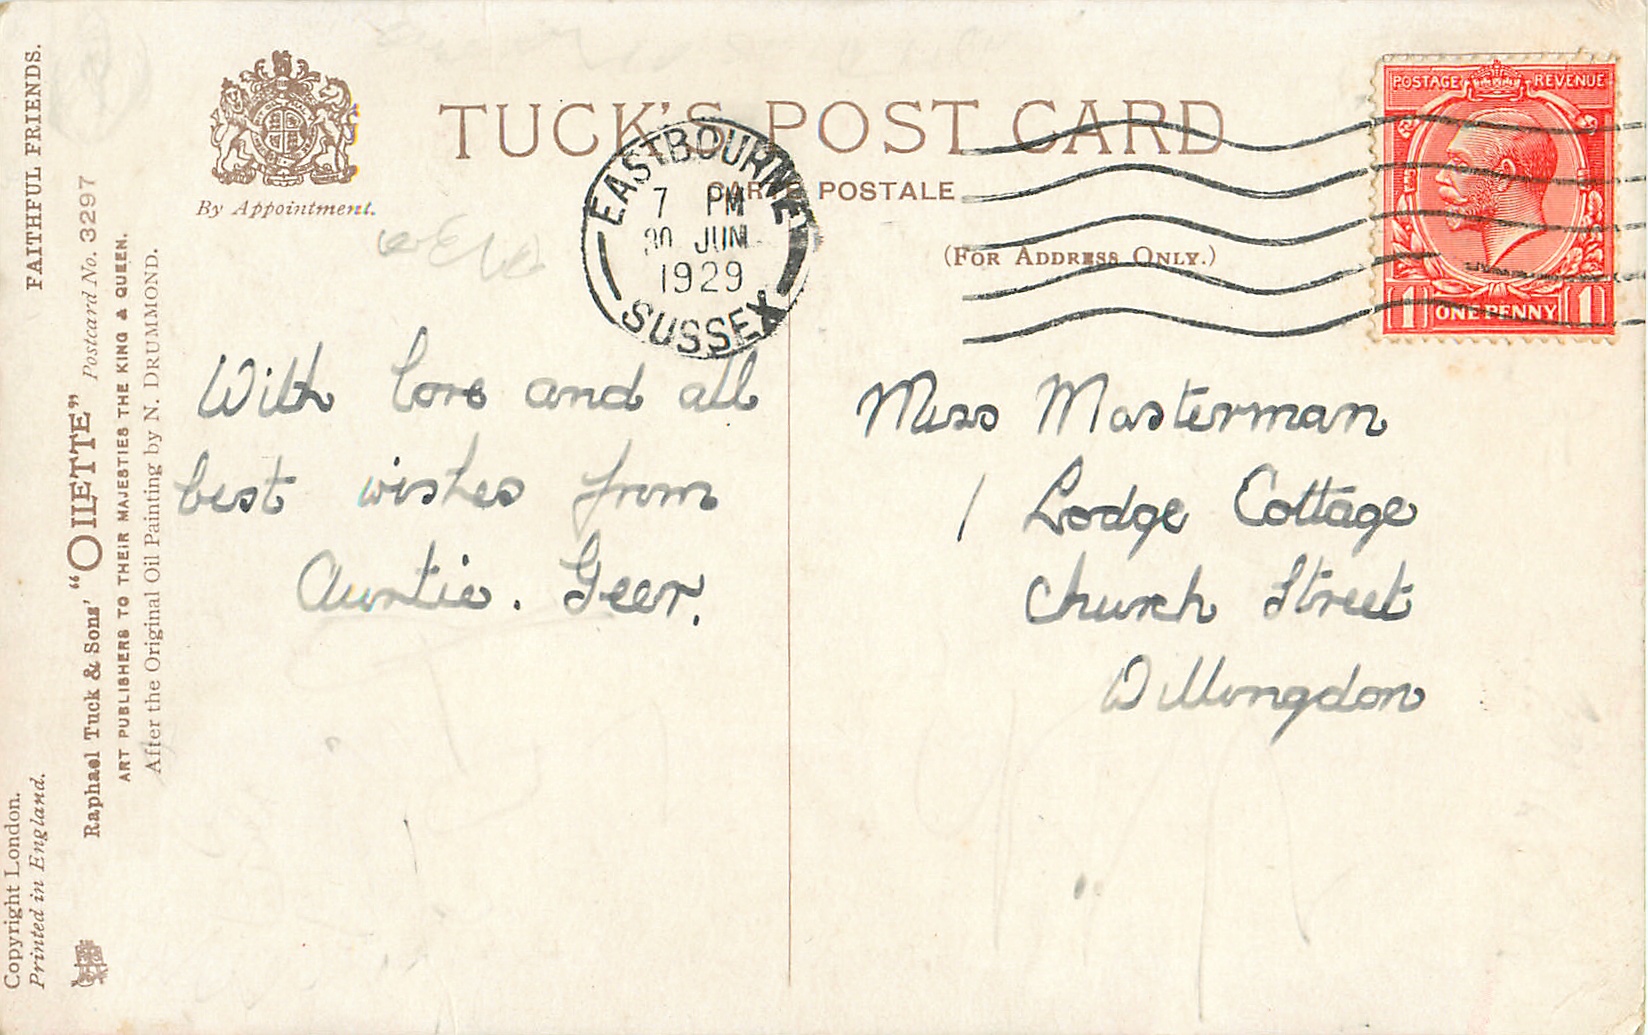 TUCK'S POST CARD
CARTE POSTALE
(FOR ADDRESS ONLY.)
By Appointment.
EASTBOURNE
7 PM
30 JUN
1929
SUSSEX
POSTAGE REVENUE
1 ONE PENNY 1
With love and all
best wishes from
Auntie. Geer.
Miss Masterman
1 Lodge Cottage
Church Street
Willingdon
FAITHFUL FRIENDS.
Copyright London.
Printed in England.
Raphael Tuck & Sons' "OILETTE" Postcard No. 3297
ART PUBLISHERS TO THEIR MAJESTIES THE KING & QUEEN.
After the Original Oil Painting by N. DRUMMOND.